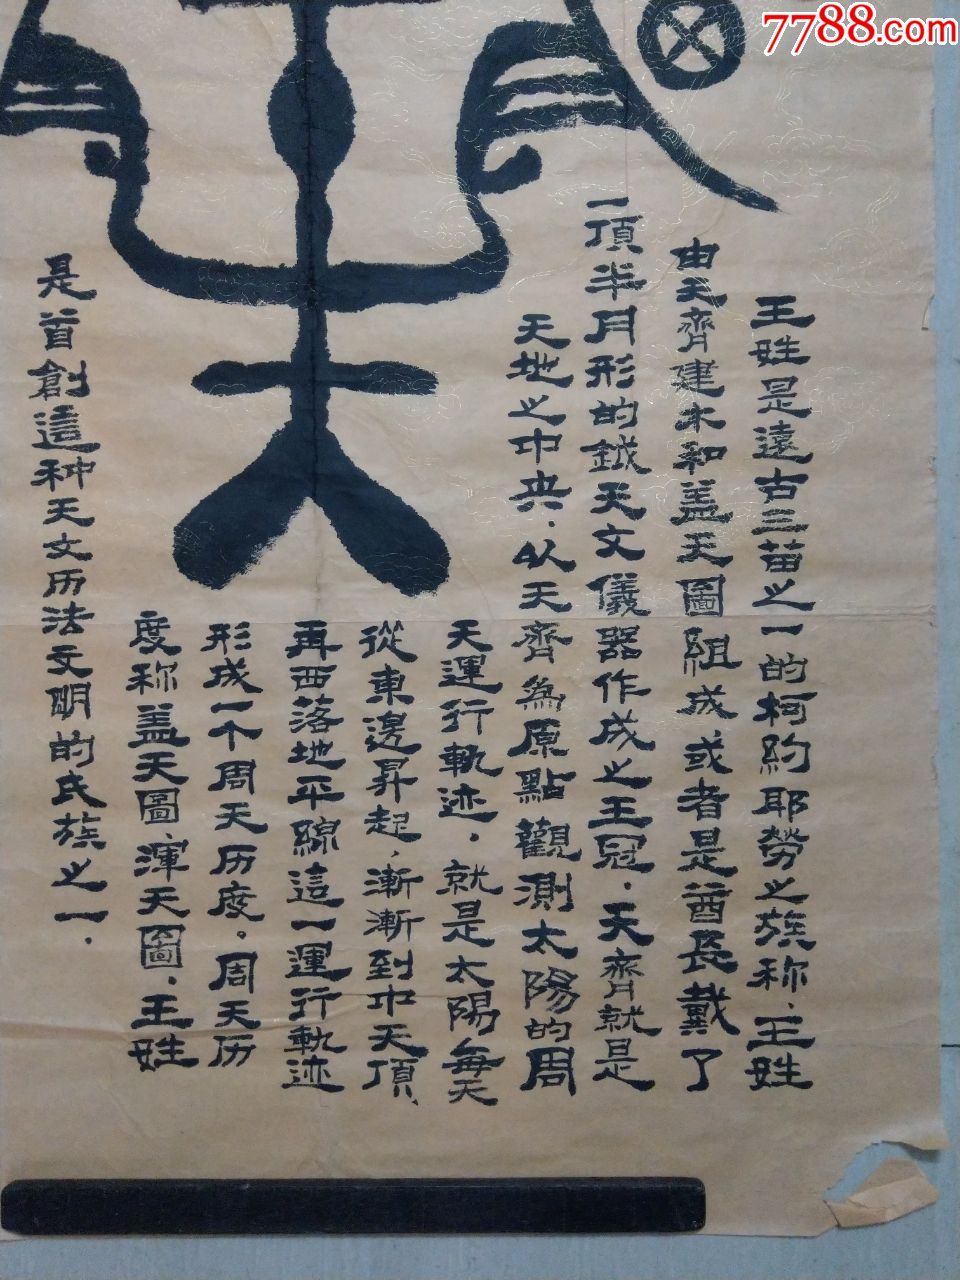 7788.com
王姓是遠古三苗之一的柯約耶勞之族称、王姓
由天齊建木和盖天圖組成、或者是酋長戴了
一頂半月形的鉞天文儀器作成之王冠.天齊就是
天地之中央.从天齊為原點觀測太陽的周
天運行軌迹、就是太陽每天
從東邊昇起、漸漸到中天頂、
再西落地平線這一運行軌迹
形成一个周天历度。周天历
度称盖天圖、渾天圖、王姓
是首創這种天文历法文明的氏族之一.